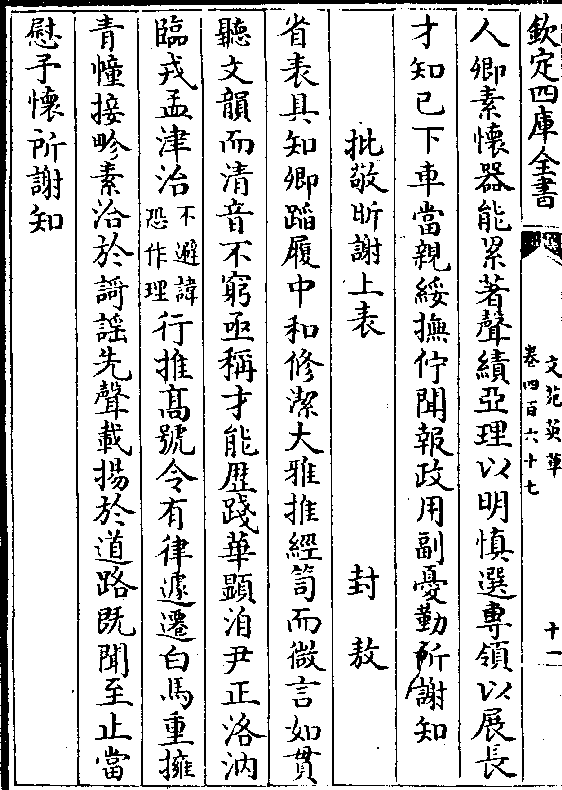 欽定四庫全書
文苑英華
卷四百六十七
十一
人卿素懷器能累著聲績亞理以明慎選專領以展長
才知已下車當親綏撫佇聞報政用副憂勤所謝知
批敬昕謝上表
封敖
省表具知卿蹈履中和修潔大雅推經笥而微言如貫
聽文韻而清音不窮亟稱才能歴踐華顯洎尹正洛汭
臨戎孟津治不避諱恐作理行推髙號令有律遽遷白馬重擁
青幢接畛素洽於謌謡先聲載揚於道路既聞至止當
慰予懷所謝知